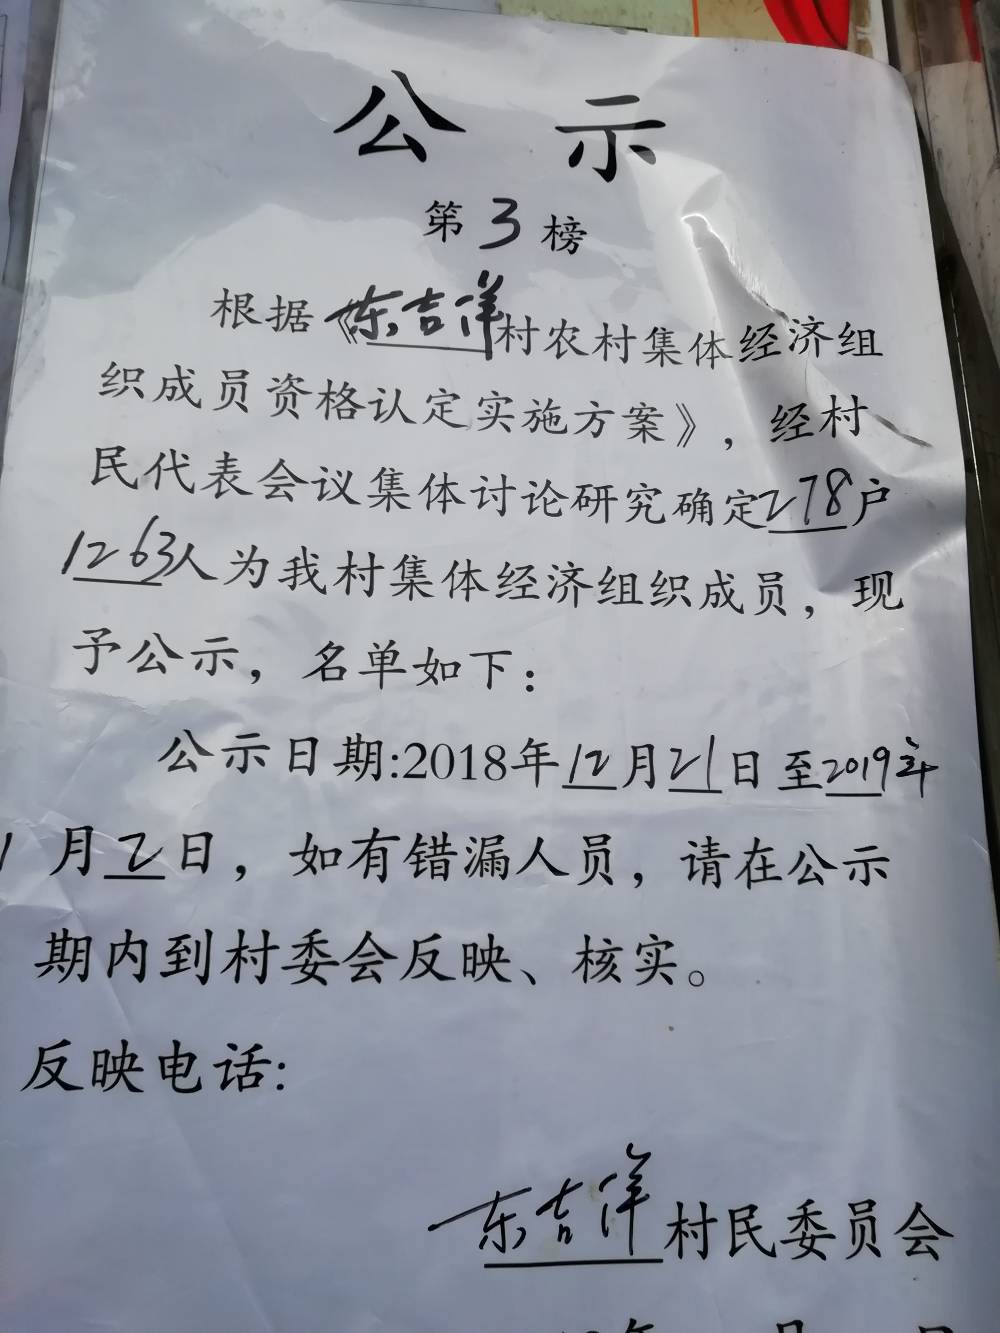 公示
第3榜
根据《东吉佯村农村集体经济组
织成员资格认定实施方案》，经村
民代表会议集体讨论研究确定278户
1263人为我村集体经济组织成员，现
予公示，名单如下：
公示日期:2018年12月21日至2019年
1月2日，如有错漏人员，请在公示
期内到村委会反映、核实。
反映电话:
东吉佯村民委员会